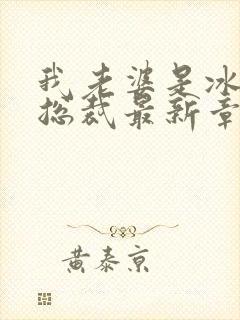 我老婆是冰
总裁最新章
黄泰京